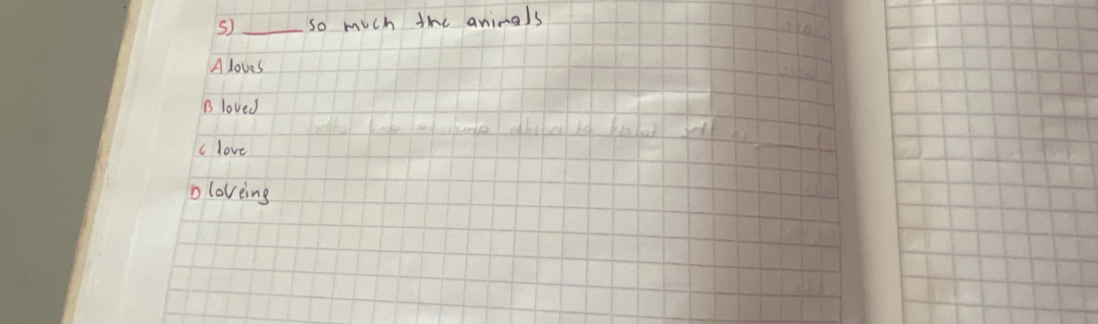 5) _____ so much the animals
A loves
B loved
C love
D loveing